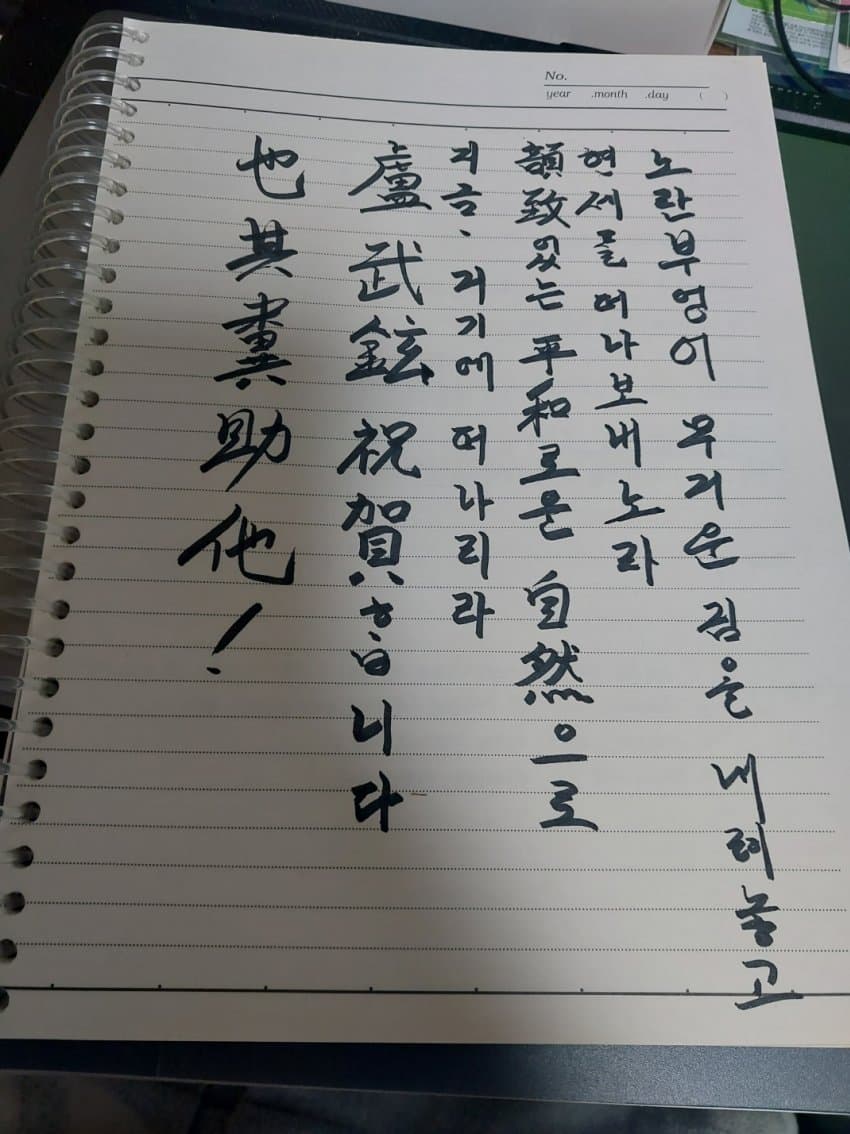 No.
year .month .day ( )
노란부엉이 무거운 짐을 내려놓고
현세를 떠나보내노라
韻致있는 平和로운 自然으로
지금, 거기에 떠나리라
盧武鉉 祝賀합니다
也其糞助他!